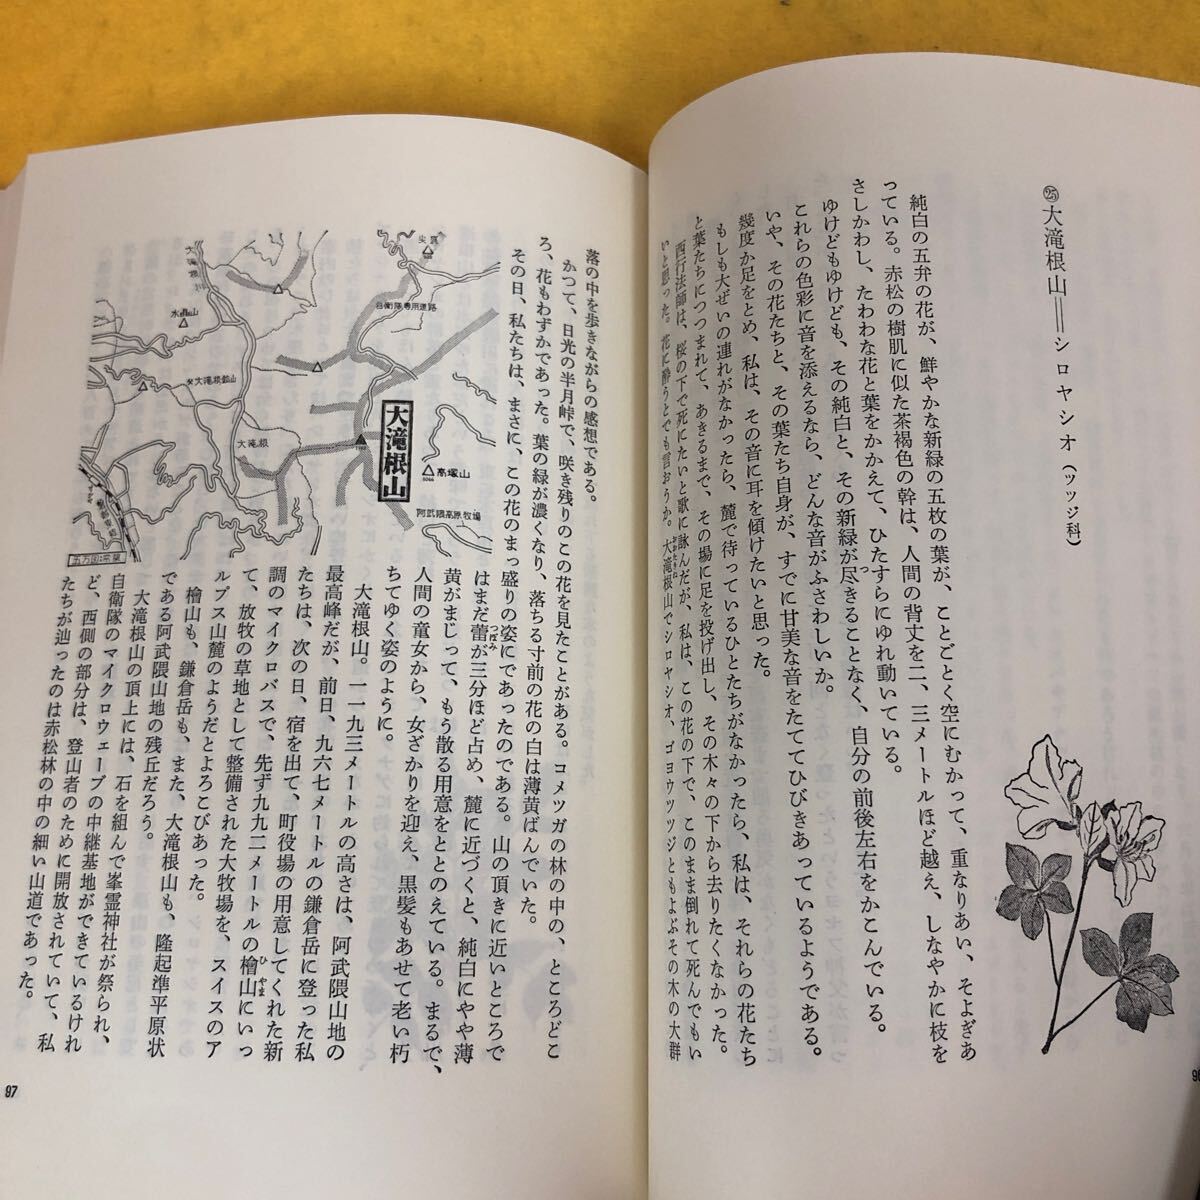 ㉕大滝根山＝＝シロヤシオ（ツツジ科）
純白の五弁の花が、鮮やかな新緑の五枚の葉が、ことごとく空にむかって、重なりあい、そよぎあ
っている。赤松の樹肌に似た茶褐色の幹は、人間の背丈を二、三メートルほど越え、しなやかに枝を
さしかわし、たわわな花と葉をかかえて、ひたすらにゆれ動いている。
ゆけどもゆけども、その純白と、その新緑が尽きることなく、自分の前後左右をかこんでいる。
これらの色彩に音を添えるなら、どんな音がふさわしいか。
いや、その花たちと、その葉たち自身が、すでに甘美な音をたててひびきあっているようである。
幾度か足をとめ、私は、その音に耳を傾けたいと思った。
もしも大ぜいの連れがなかったら、麓で待っているひとたちがなかったら、私は、それらの花たち
と葉たちにつつまれて、あきるまで、その場に足を投げ出し、その木々の下から去りたくなかった。
西行法師は、桜の下で死にたいと歌に詠んだが、私は、この花の下で、このまま倒れて死んでもい
いと思った。花に酔うとでも言おうか。大滝根山でシロヤシオ、ゴヨウツツジともよぶその木の大群
落の中を歩きながらの感想である。
かつて、日光の半月峠で、咲き残りのこの花を見たことがある。コメツガの林の中の、ところどこ
ろ、花もわずかであった。葉の緑が濃くなり、落ちる寸前の花の白は薄黄ばんでいた。
その日、私たちは、まさに、この花のまっ盛りの姿にであったのである。山の頂きに近いところで
はまだ蕾が三分ほど占め、麓に近づくと、純白にやや薄
黄がまじって、もう散る用意をととのえている。まるで、
人間の童女から、女ざかりを迎え、黒髪もあせて老い朽
ちてゆく姿のように。
大滝根山。一一九三メートルの高さは、阿武隈山地の
最高峰だが、前日、九六七メートルの鎌倉岳に登った私
たちは、次の日、宿を出て、町役場の用意してくれた新
調のマイクロバスで、先ず九九二メートルの檜山にいっ
て、放牧の草地として整備された大牧場を、スイスのア
ルプス山麓のようだとよろこびあった。
檜山も、鎌倉岳も、また、大滝根山も、隆起準平原状
である阿武隈山地の残丘だろう。
大滝根山の頂上には、石を組んで峯霊神社が祭られ、
自衛隊のマイクロウェーブの中継基地ができているけれ
ど、西側の部分は、登山者のために開放されていて、私
たちが辿ったのは赤松林の中の細い山道であった。
自衛隊専用道路
水晶山
大滝根鉱山
大滝根
大滝根山
高塚山
阿武隈高原牧場
97